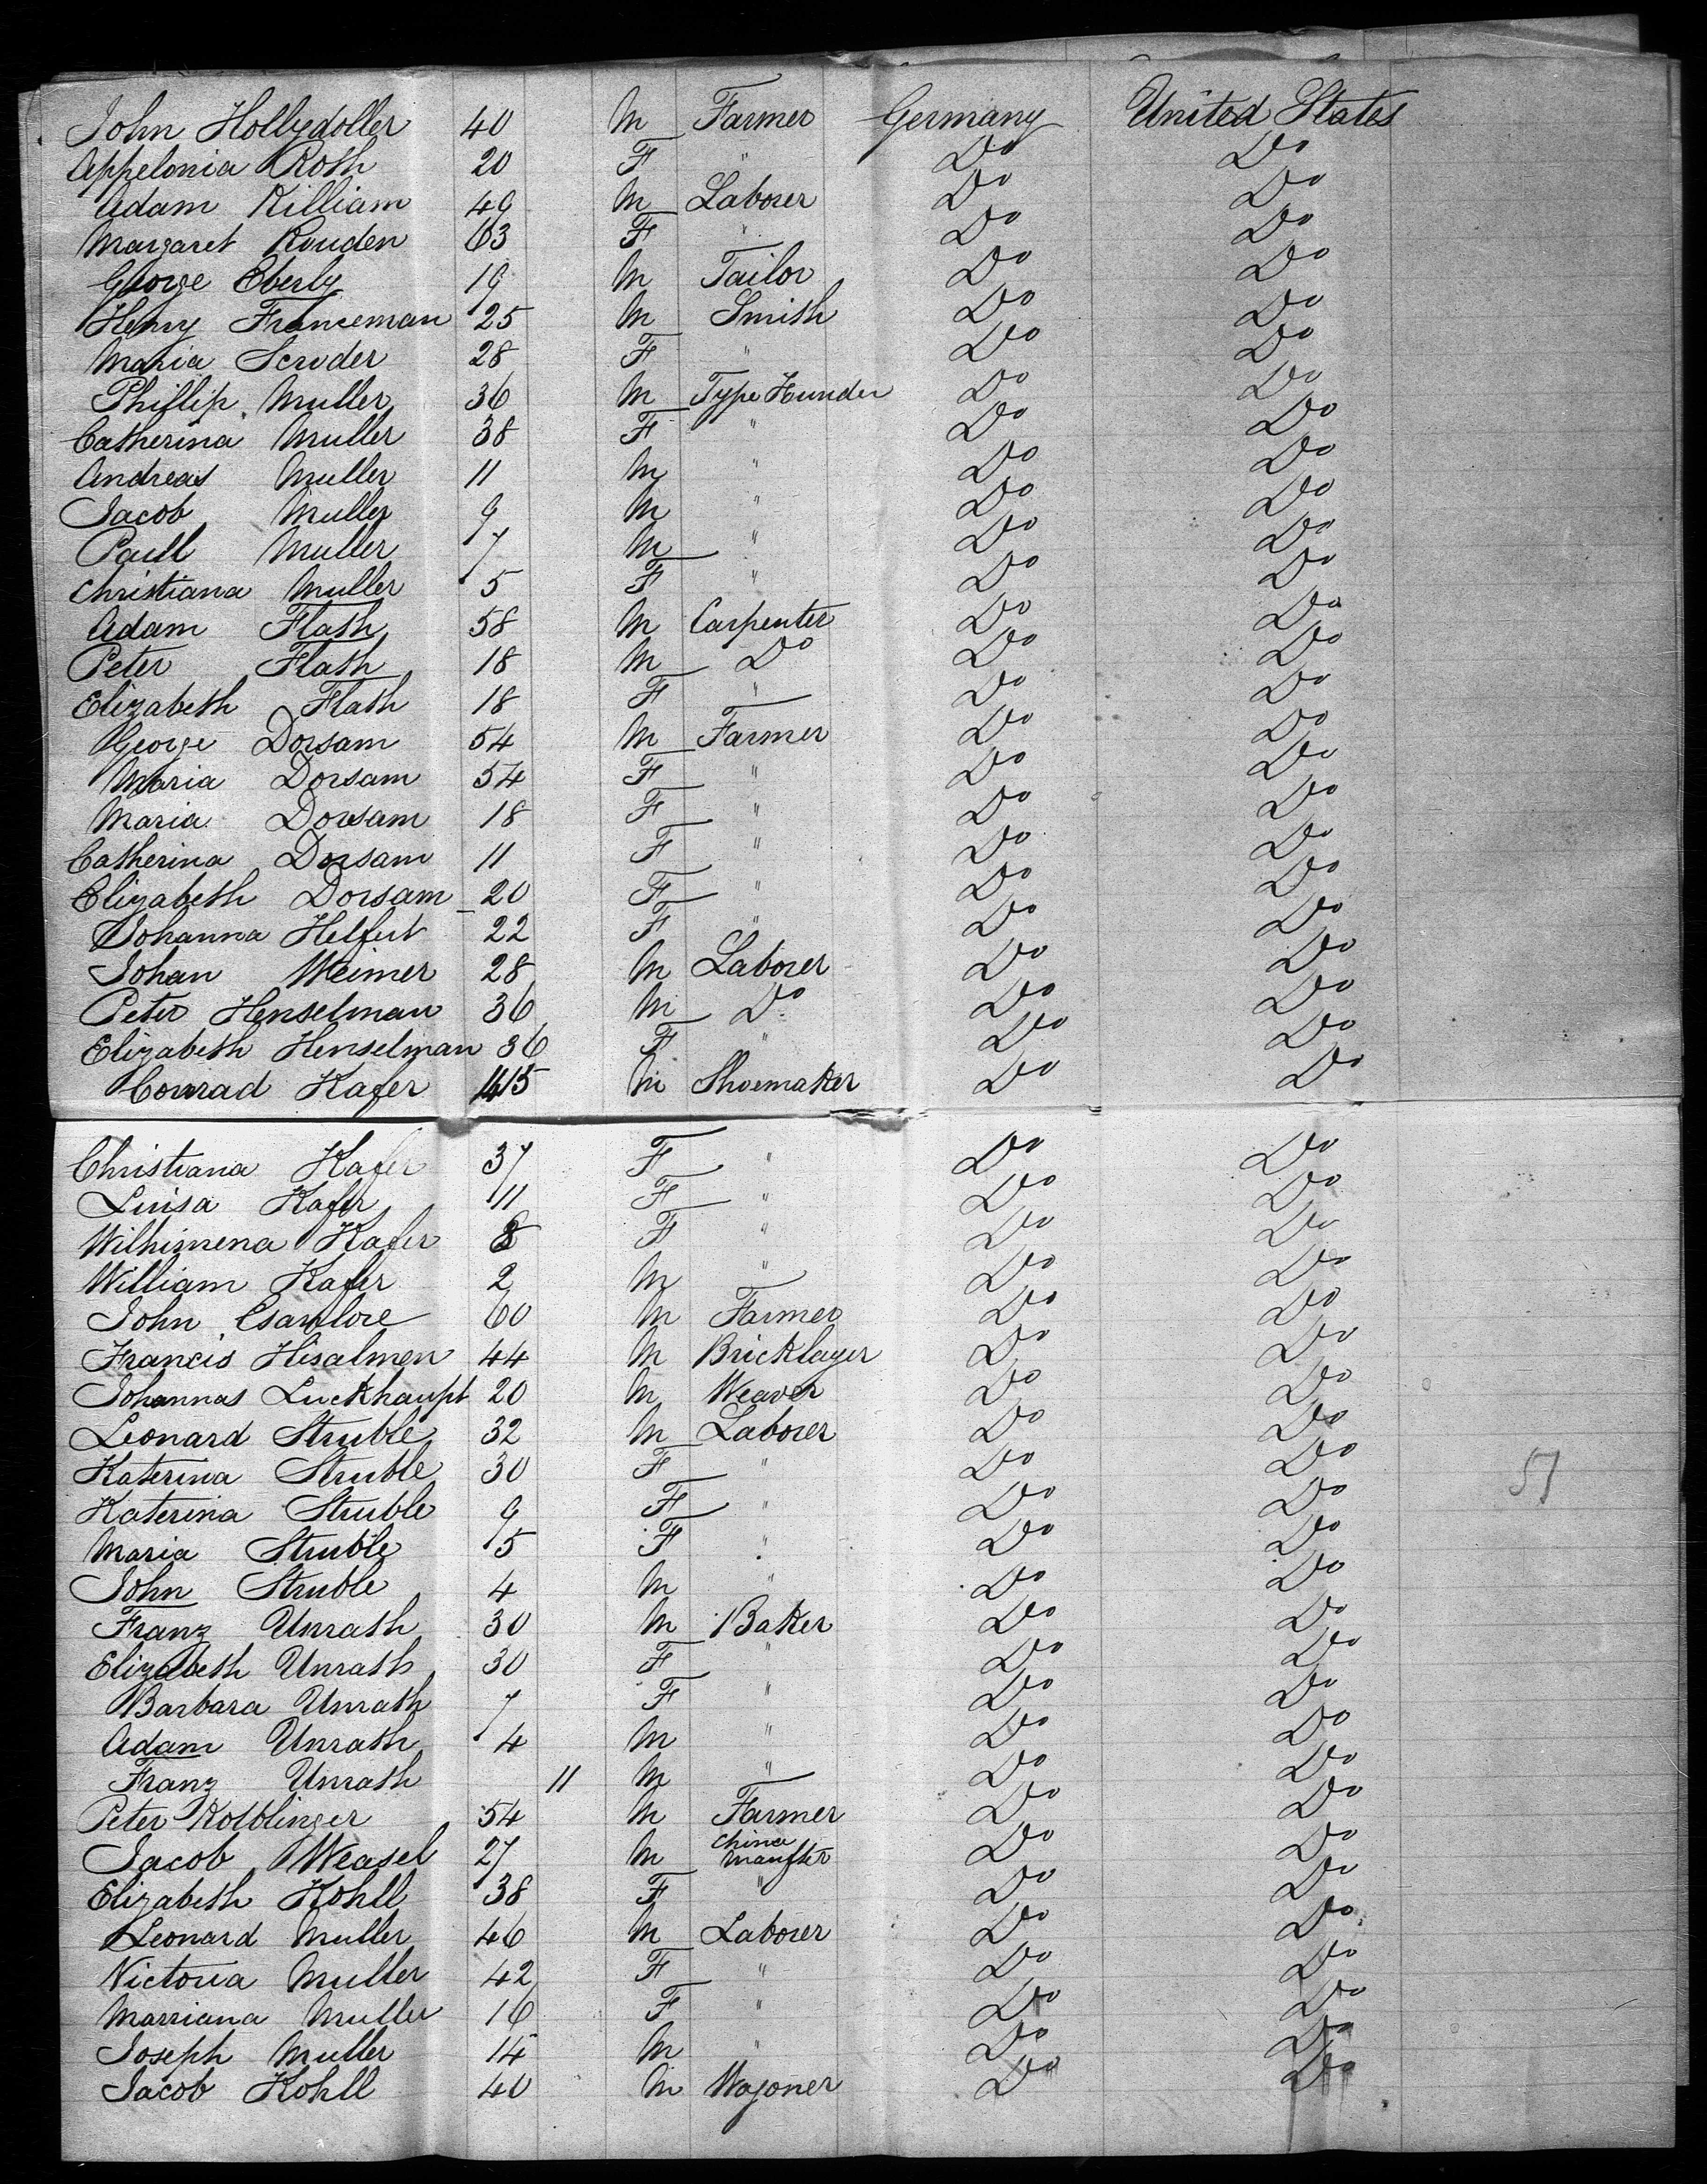 John Hollydoller 40 M Farmer Germany United States
Appelonia Roth 20 F " Do Do
Adam Killiam 49 M Laborer Do Do
Margaret Rouden 63 F " Do Do
George Eberly 19 M Tailor Do Do
Henry Franceman 25 M Smith Do Do
Maria Scruder 28 F " Do Do
Phillip Muller 36 M Type Hunder Do Do
Catherina Muller 38 F " Do Do
Andreas Muller 11 M " Do Do
Jacob Muller 9 M " Do Do
Paull Muller 7 M " Do Do
Christiana Muller 5 F " Do Do
Adam Flath 58 M Carpenter Do Do
Peter Flath 18 M Do Do Do
Elizabeth Flath 18 F " Do Do
George Dorsam 54 M Farmer Do Do
Maria Dorsam 54 F " Do Do
Maria Dorsam 18 F " Do Do
Catherina Dorsam 11 F " Do Do
Elizabeth Dorsam 20 F " Do Do
Johanna Helfut 22 F " Do Do
Johan Weimer 28 M Laborer Do Do
Peter Henselman 36 M Do Do Do
Elizabeth Henselman 36 F " Do Do
Conrad Kafer 45 M Shoemaker Do Do
Christiana Kafer 37 F " Do Do
Luisa Kafer 11 F " Do Do
Wilhimena Kafer 8 F " Do Do
William Kafer 2 M " Do Do
John 60 M Farmer Do Do
Francis Hisalmen 44 M Bricklayer Do Do
Johannas Luckhaupt 20 M Weaver Do Do
Leonard Struble 32 M Laborer Do Do
Katerina Struble 30 F " Do Do
51
Katerina Struble 9 F " Do Do
Maria Struble 5 F " Do Do
John Struble 4 M " Do Do
Franz Unrath 30 M Baker Do Do
Elizabeth Unrath 30 F " Do Do
Barbara Unrath 7 F " Do Do
Adam Unrath 4 M " Do Do
Franz Unrath 11 M " Do Do
Peter Kolblinger 54 M Farmer Do Do
Jacob Weasel 27 M China Manfter Do Do
Elizabeth Kohll 38 F " Do Do
Leonard Muller 46 M Laborer Do Do
Victoria Muller 42 F " Do Do
Marriana Muller 16 F " Do Do
Joseph Muller 14 M " Do Do
Jacob Kohll 40 M Wagoner Do Do